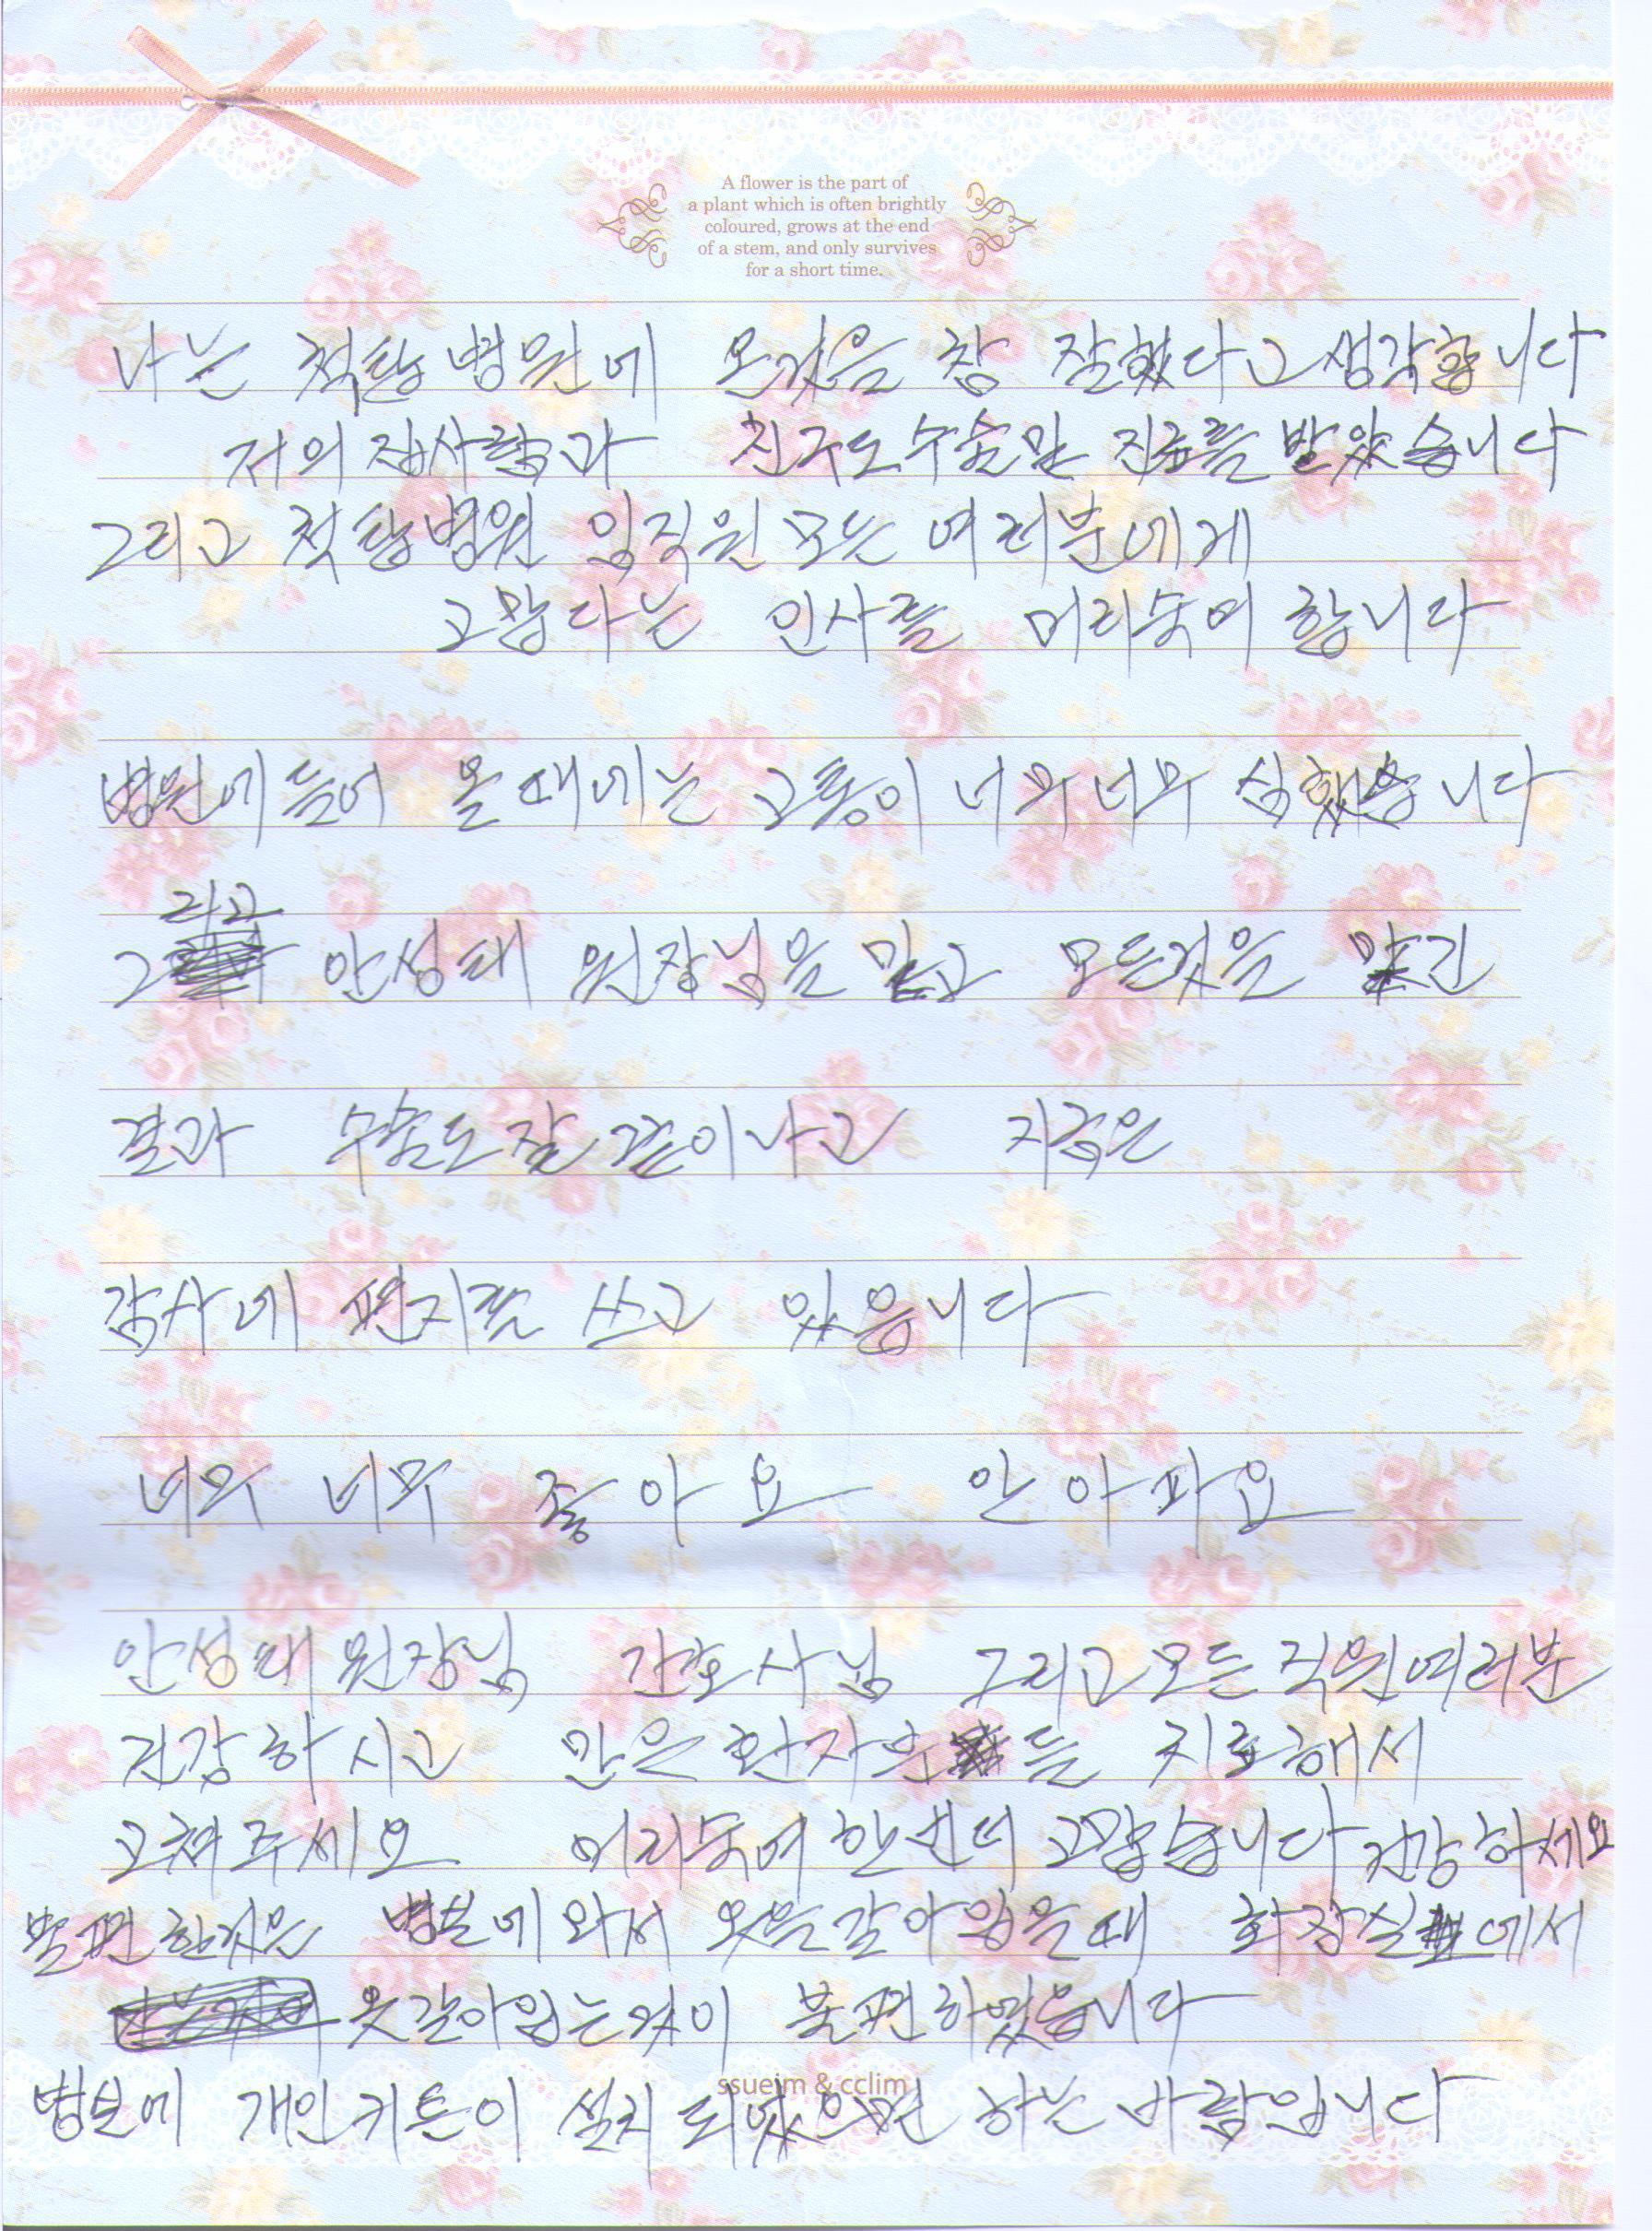 A flower is the part of
a plant which is often brightly
coloured, grows at the end
of a stem, and only survives
for a short time.
나는 척탑병원에 온것을 참 잘했다고 생각합니다
저의 집사람과 친구도 수술및 진료를 받았습니다
그리고 척탑병원 임직원 모든 여러분에게
고맙다는 인사를 머리숙여 합니다
병원에 들어 올때에는 고통이 너무너무 심했습니다
그리고 안성태 원장님을 믿고 모든것을 맡긴
결과 수술도 잘 끝이나고 지금은
감사에 편지를 쓰고 있읍니다
너무 너무 좋아요 안아파요
안성태 원장님 간호사님 그리고 모든 직원여러분
건강하시고 만은 환자분들 치료해서
고쳐주세요 머리숙여 한번더 고맙습니다 건강하세요
불편한것은 병실에 와서 옷을 갈아입을때 화장실에서
옷갈아입는것이 불편하였습니다
병실에 개인커튼이 설치되었으면 하는 바람입니다
ssueim & cclim